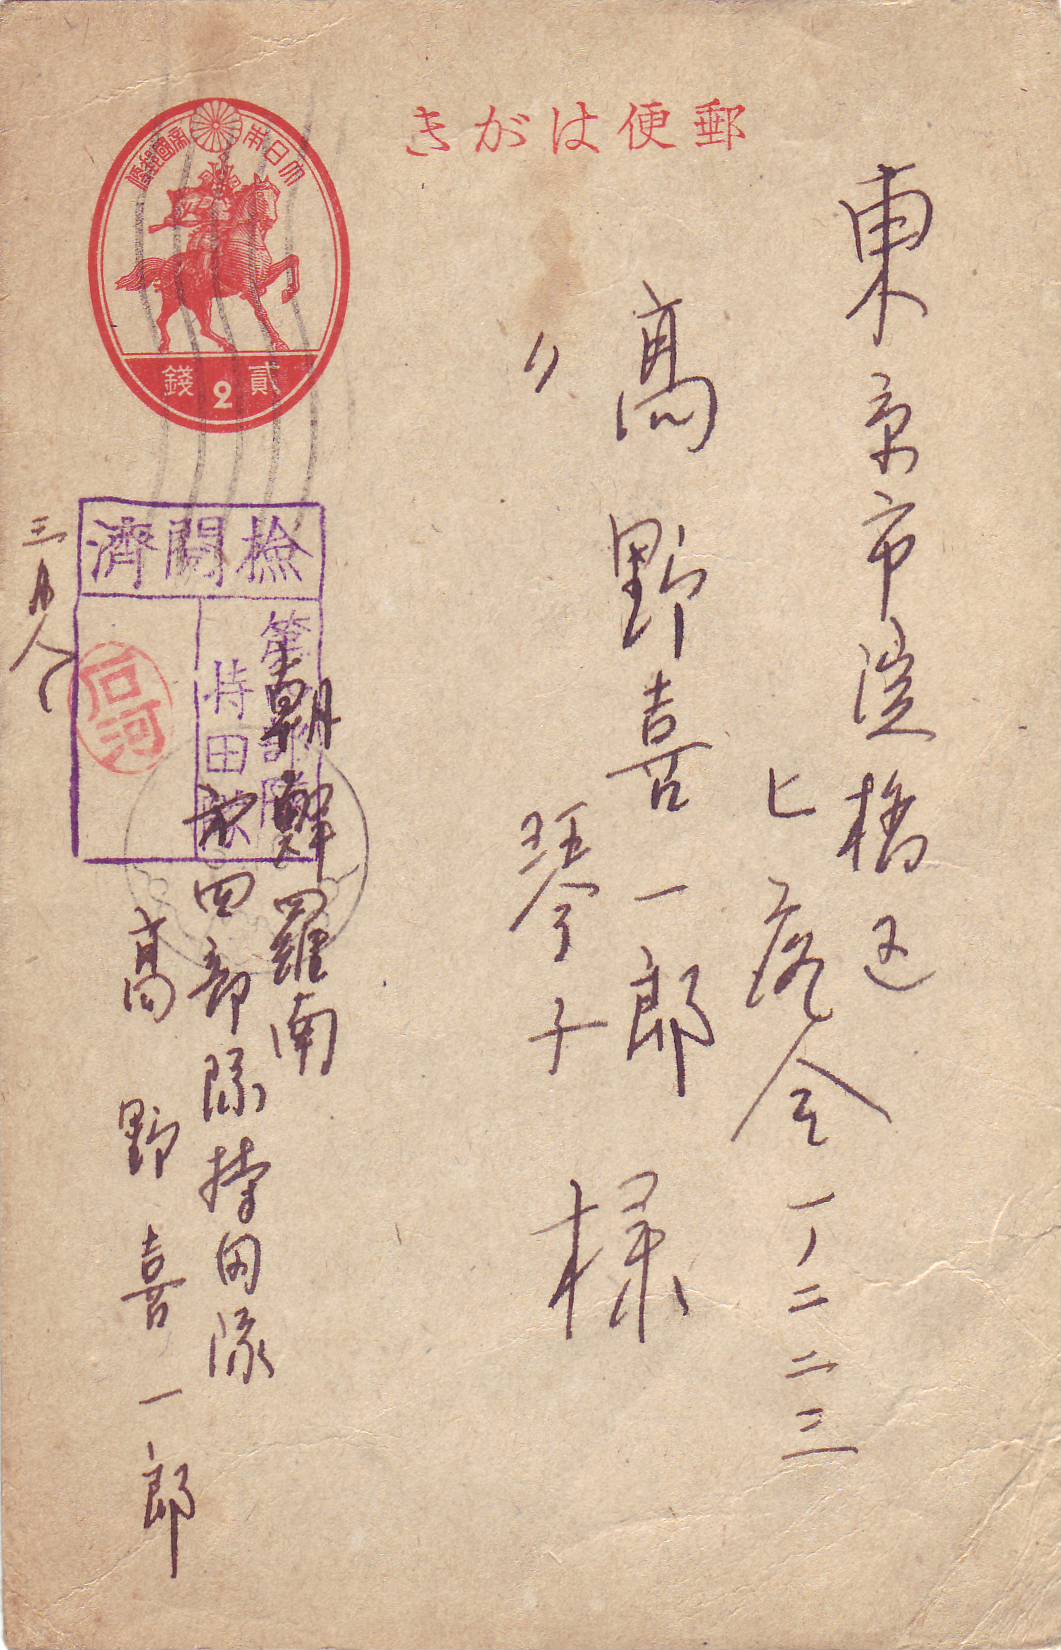 郵便はがき
大日本帝國郵便
貳2錢
東京市淀橋区
上落合一ノ二二三
高野喜一郎
〃 琴子 様
検閲済
第 部隊
持田隊
石河
朝鮮羅南
四部隊持田隊
高野喜一郎